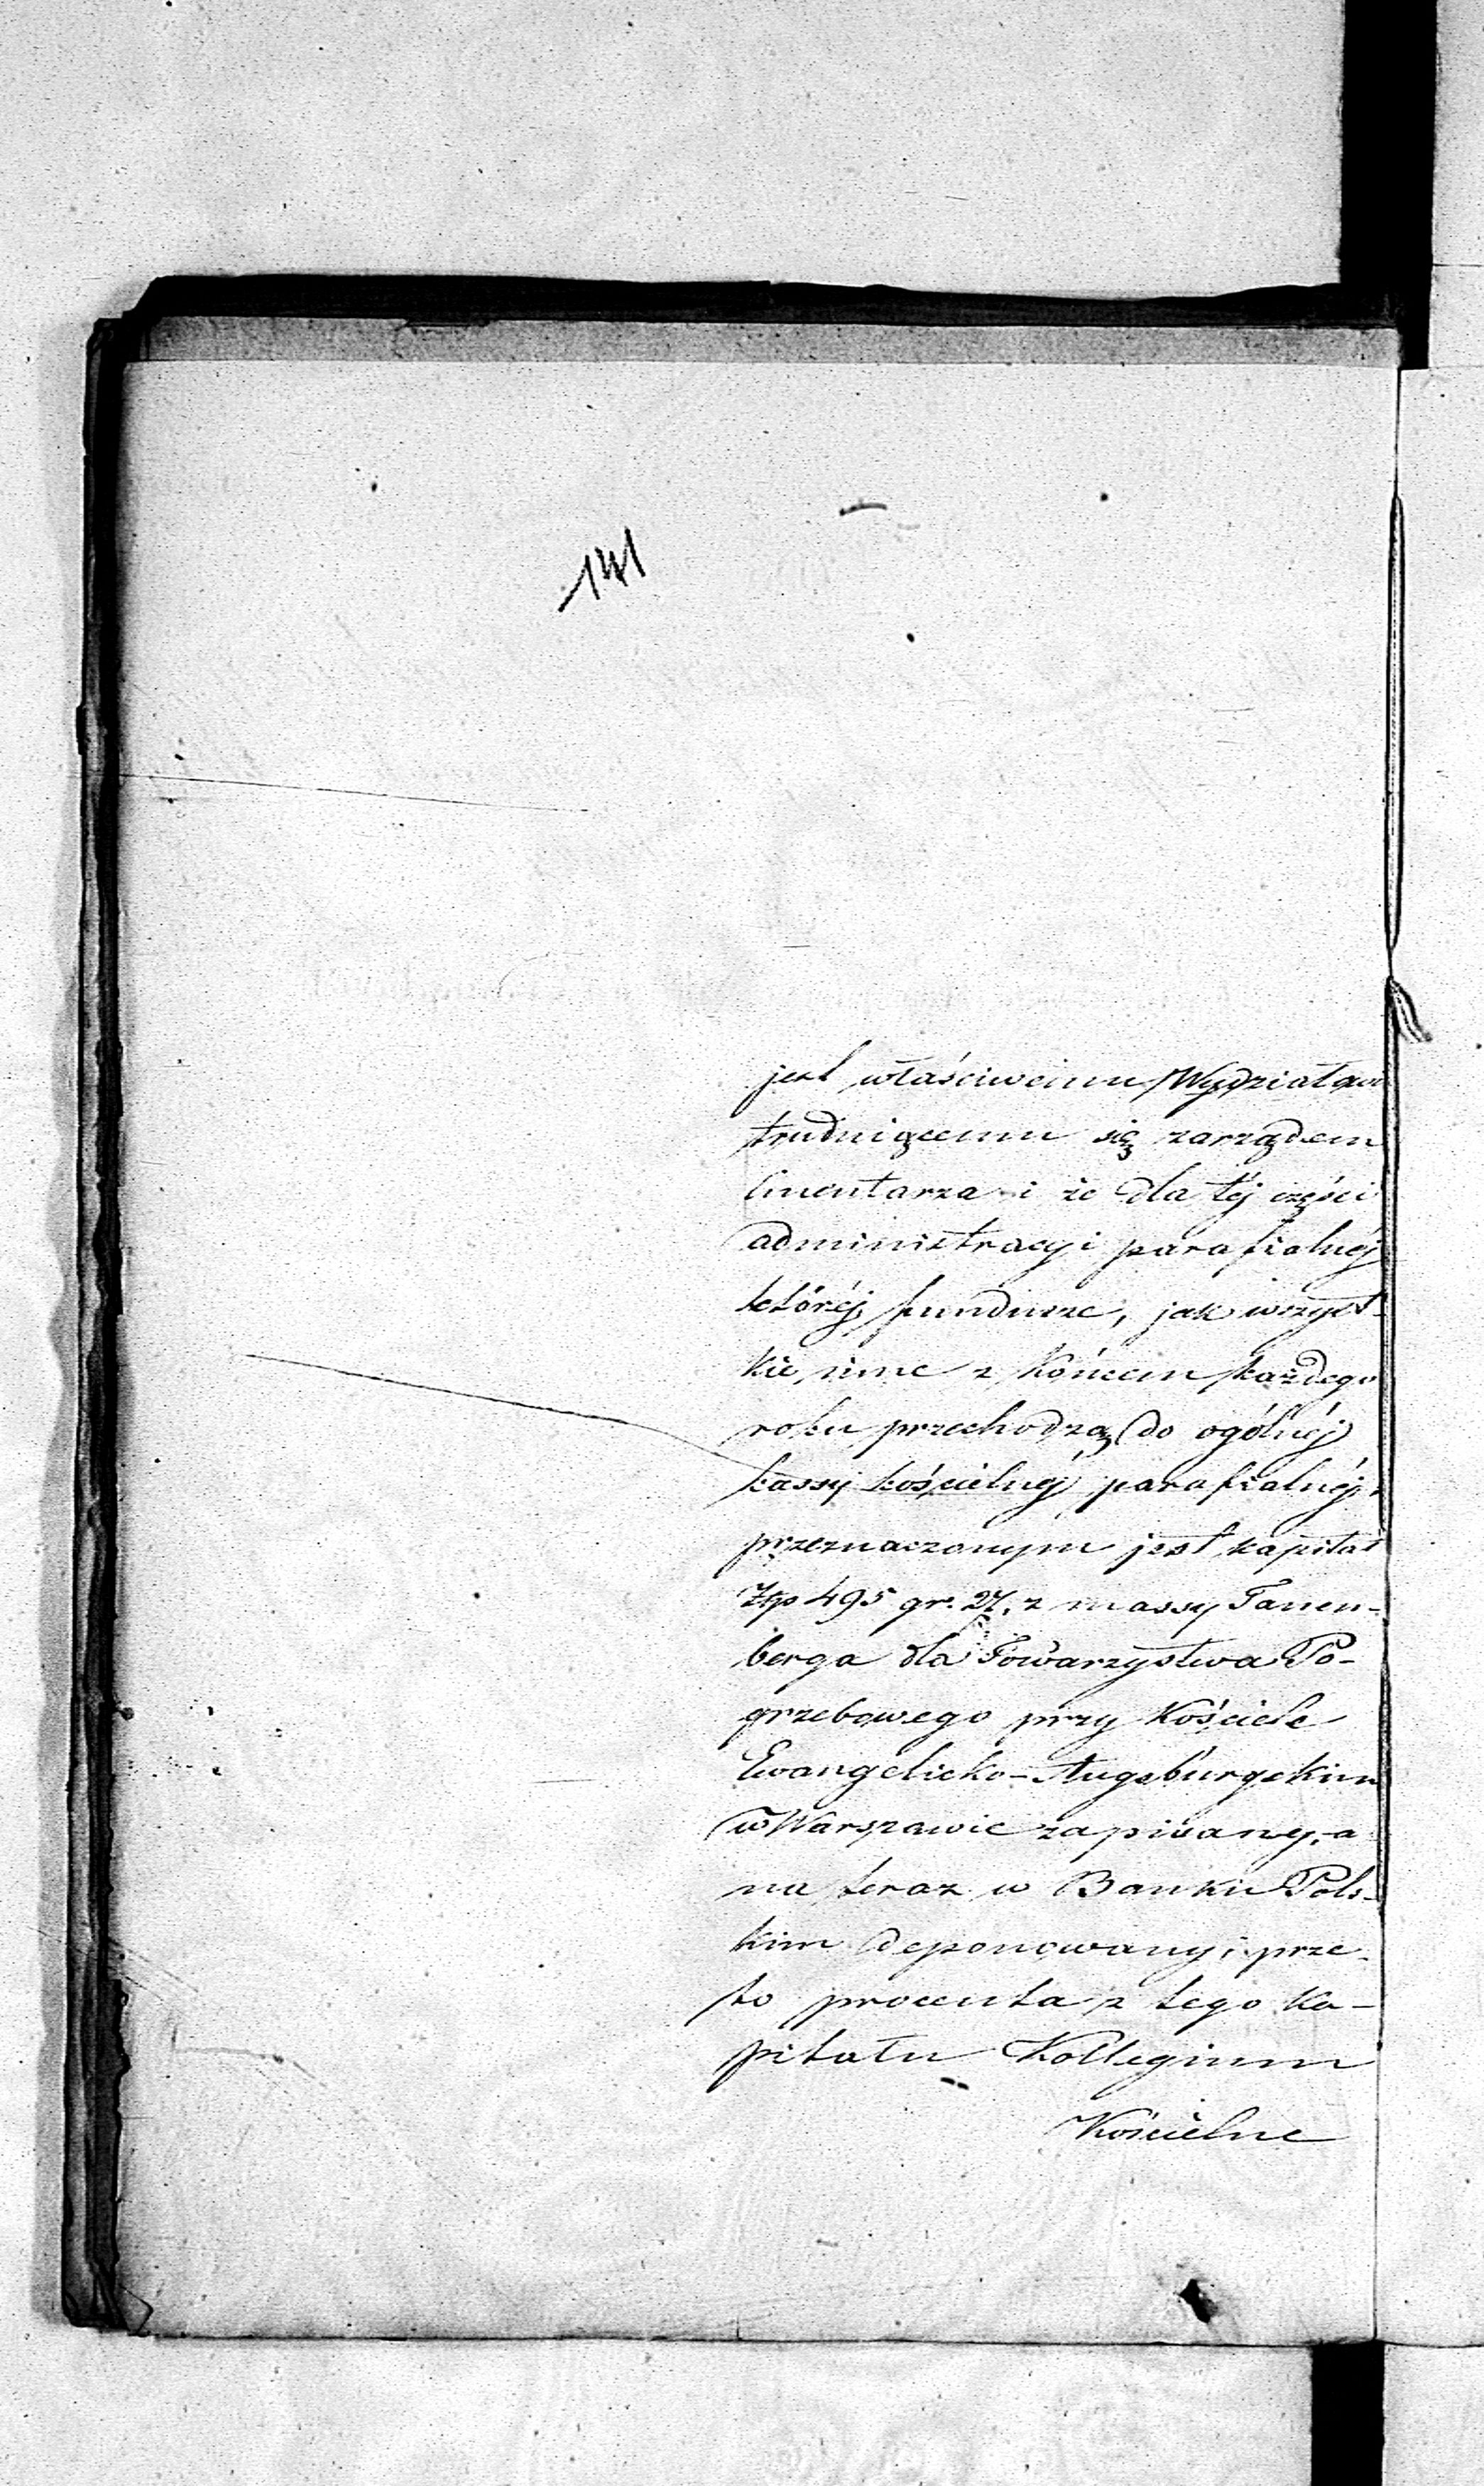 141
jest właściwemu Wydziałowi
trudniącemu się zarządem
Cmentarza i że dla téj części
administracyi parafialnéj
któréj fundusze, jak wszyst-
kie inne z końcem każdego
roku przechodzą do ogólnéj
kassy kościelnéj parafialnéj,
przeznaczonym jest kapitał
Złp 495 gr. 27. z massy Tanen-
berga dla Towarzystwa Po-
grzebowego przy Kościele
Ewangelicko-Augsburgskim
w Warszawie zapisany, a
na teraz w Banku Pols-
kim deponowany; prze-
to procenta z tego ka-
pitału Kollegium
Kościelne